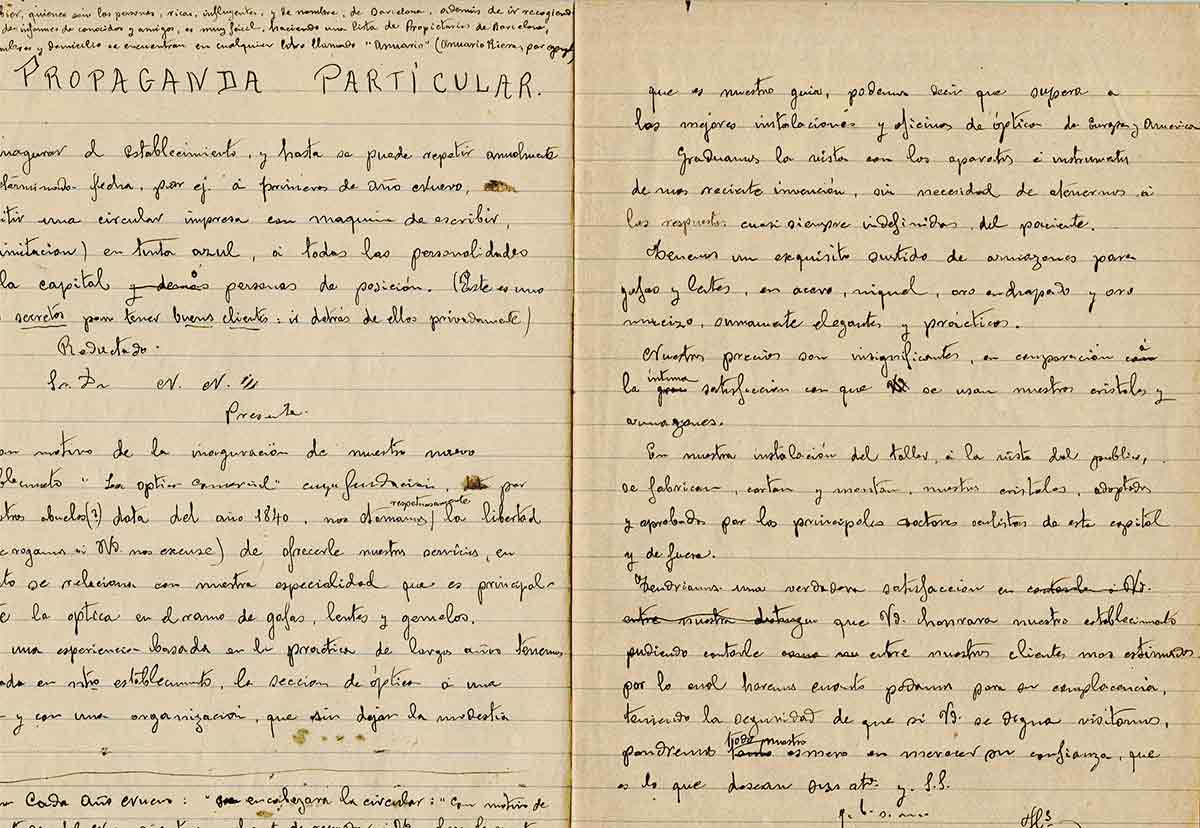 bier, quienes son las personas, ricas, influyentes, y de nombre, de Barcelona, además de ir recogiendo
de informes de conocidos y amigos, es muy fácil, haciendo una lista de Propietarios de Barcelona,
mbres y domicilio se encuentran en cualquier libro llamado "Anuario" (Anuario Riera, por ejempl)
PROPAGANDA PARTÍCULAR.
naugurar el establecimiento, y hasta se puede repetir anualmente
eterminada fecha, por ej. á primeros de año nuevo,
itir una circular impresa con maquina de escribir,
imitacion) en tinta azul, á todas las personalidades
la capital y demás ó personas de posición. (Este es uno
secretos para tener buens clientes: ir detrás de ellos privadamente)
Redactado.
Sr. Dn N. N.
Presente.
on motivo de la inaguración de nuestro nuevo
blecimiento "La optica comercial" cuya fundacion, por
stros abuelos(?) data del año 1840, nos tomamos respetuosamente la libertad
e rogamos á Vd. nos excuse) de ofrecerle nuestros servicios, en
to se relaciona con nuestra especialidad que es principal-
e la optica en el ramo de gafas, lentes y gemelos.
una experiencia basada en la práctica de largos años tenemos
ada en ntro establecimento, la seccion de óptica á una
y con una organización, que sin dejar la modestia
Cada Año nuevo: encabezará la circular: "Con motivo de
que es nuestro guia, podemos decir que supera a
las mejores instalaciones y oficinas de óptica de Europa y America
Graduamos la vista con los aparatos é instrumentos
de mas reciente invención, sin necesidad de atenernos á
las respuestas casi siempre indefinidas del paciente.
Tenemos un exquisito surtido de armazones para
gafas y lentes, en acero, niquel, oro enchapado y oro
macizo, sumamente elegantes y prácticos.
Nuestros precios son insignificantes, en comparación con á
la gran íntima satisfacción con que se usan nuestros cristales y
armazones.
En nuestra instalación del taller, á la vista del publico,
se fabrican, cortan y montan, nuestros cristales, adoptados
y aprobados por los principales doctores oculistas de esta capital
y de fuera.
Tendríamos una verdadera satisfacción en contarle á Vd.
entre nuestra que Vd. honrara nuestro establecimento
pudiendo contarle como su entre nuestros clientes mas estimados
por lo cual haremos cuanto podamos para su complacencia,
teniendo la seguridad de que si Vd. se digna visitarnos,
pondremos todo nuestro esmero en merecer su confianza, que
es lo que desean sus atº. y S.S.
q. b. s. mano